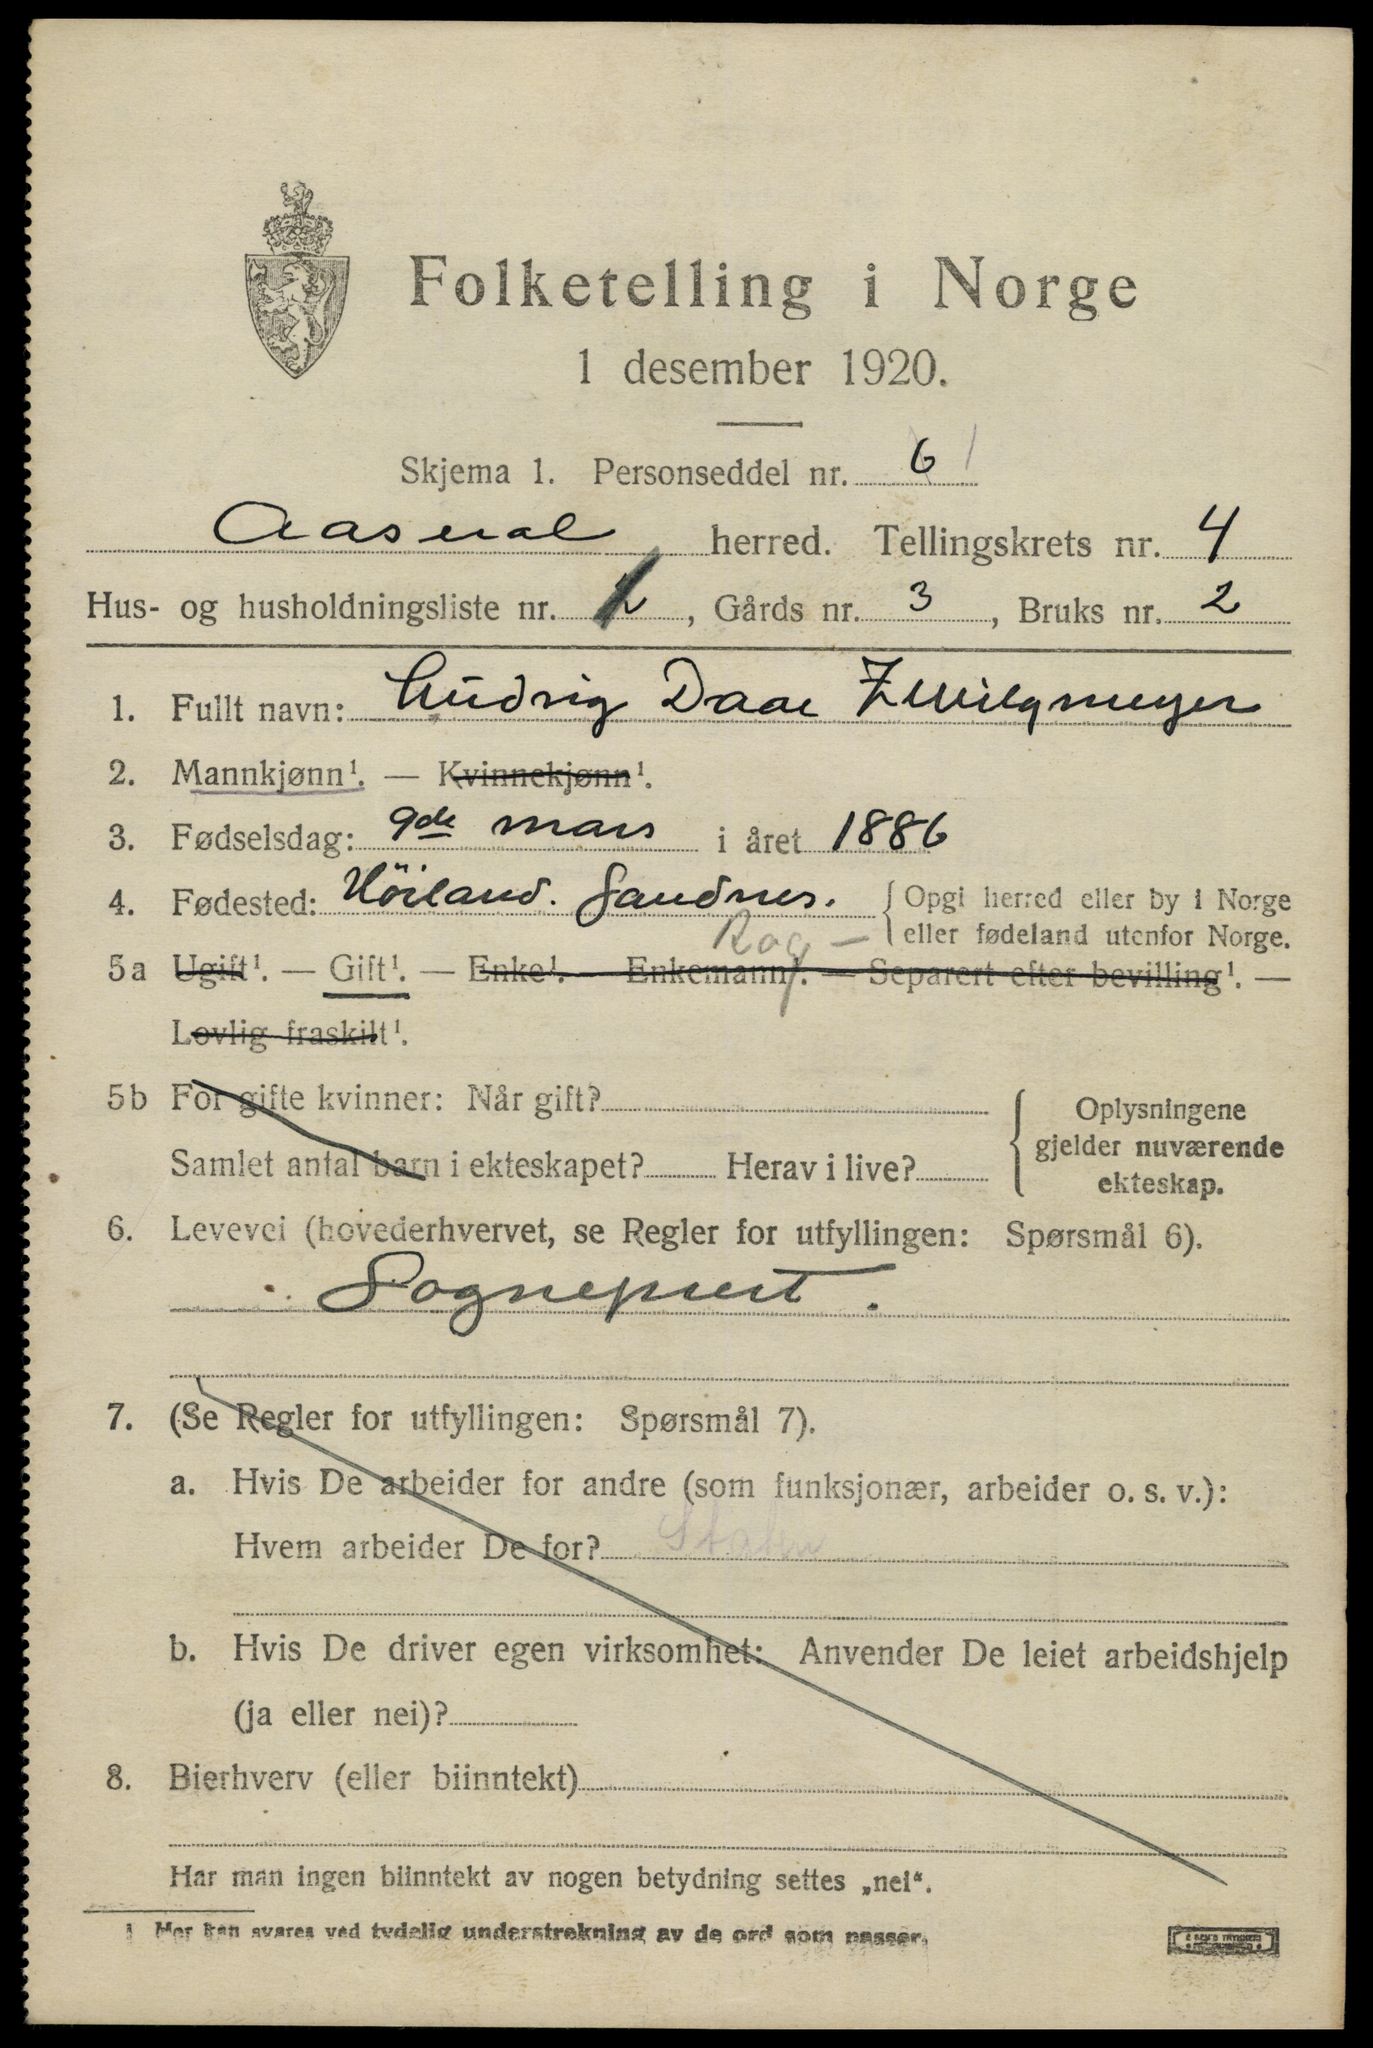 Folketelling i Norge
1 desember 1920.
Skjema 1. Personseddel nr. 6
Aaseral herred. Tellingskrets nr. 4
Hus- og husholdningsliste nr. , Gårds nr. 3, Bruks nr. 2
1. Fullt navn: Ludvig Daae Zwilgmeyer
2. Mannkjønn¹. — Kvinnekjønn¹.
3. Fødselsdag: 9de mars i året 1886
4. Fødested: Höiland. Sandnes. { Opgi herred eller by i Norge
Rog — eller fødeland utenfor Norge.
5a Ugift¹. — Gift¹. — Enke¹. — Enkemann¹. — Separert efter bevilling¹. —
Lovlig fraskilt¹.
5b For gifte kvinner: Når gift?
Samlet antal barn i ekteskapet? Herav i live?
{ Oplysningene
gjelder nuværende
ekteskap.
6. Levevei (hovederhvervet, se Regler for utfyllingen: Spørsmål 6).
Sogneprest.
7. (Se Regler for utfyllingen: Spørsmål 7).
a. Hvis De arbeider for andre (som funksjonær, arbeider o. s. v.):
Hvem arbeider De for? Staten
b. Hvis De driver egen virksomhet: Anvender De leiet arbeidshjelp
(ja eller nei)?
8. Bierhverv (eller biinntekt)
Har man ingen biinntekt av nogen betydning settes „nei“.
¹ Her kan svares ved tydelig understrekning av de ord som passer.